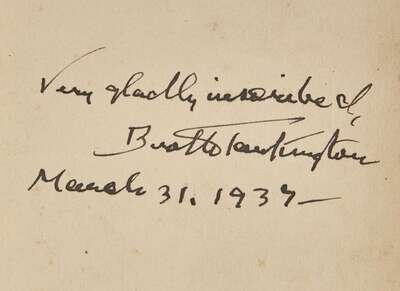 Very gladly inscribed,
Booth Tarkington
March 31. 1937–